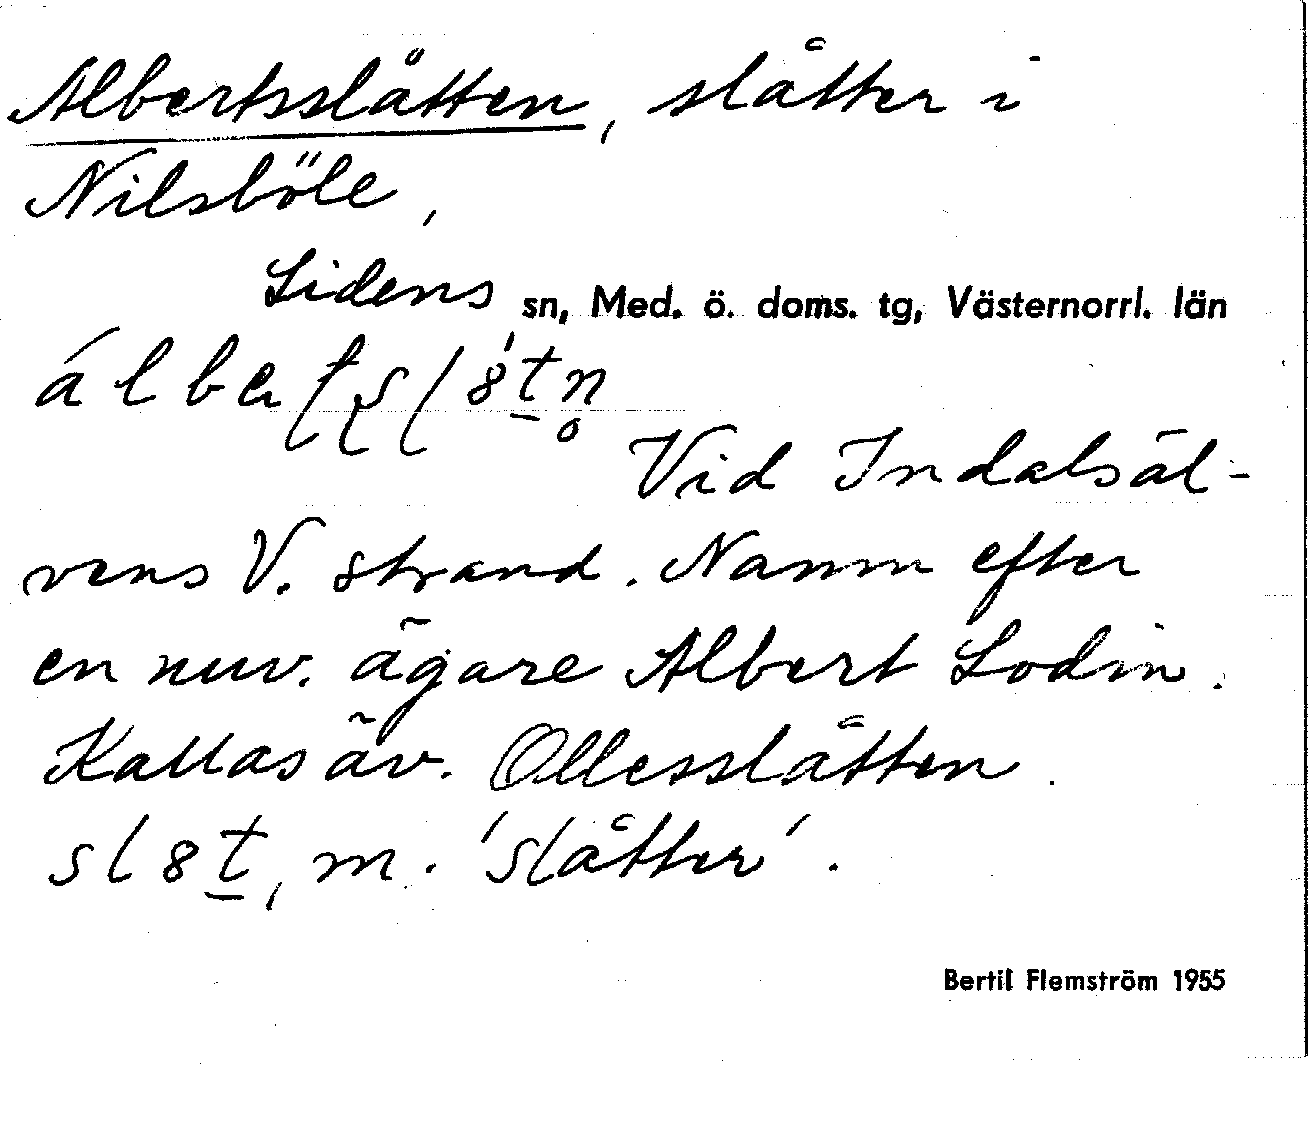 Albertsslåtten, slåtter i
Nilsböle,
Lidens sn, Med. ö. doms. tg, Västernorrl. län
Vid Indalsäl-
vens V. strand. Namn efter
en nuv. ägare Albert Lodin.
Kallas äv. Ollesslåtten.
sl8t, m. 'slåtter'.
Bertil Flemström 1955